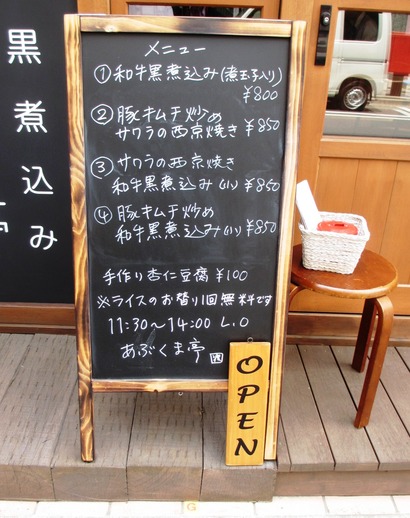 黒煮込み
メニュー
① 和牛黒煮込み(煮玉子入り)
¥800
② 豚キムチ炒め
サワラの西京焼き ¥850
③ サワラの西京焼き
和牛黒煮込み(小) ¥850
④ 豚キムチ炒め
和牛黒煮込み(小) ¥850
手作り杏仁豆腐 ¥100
※ライスのお替り1回無料です
11:30〜14:00 L.O
あぶくま亭
OPEN